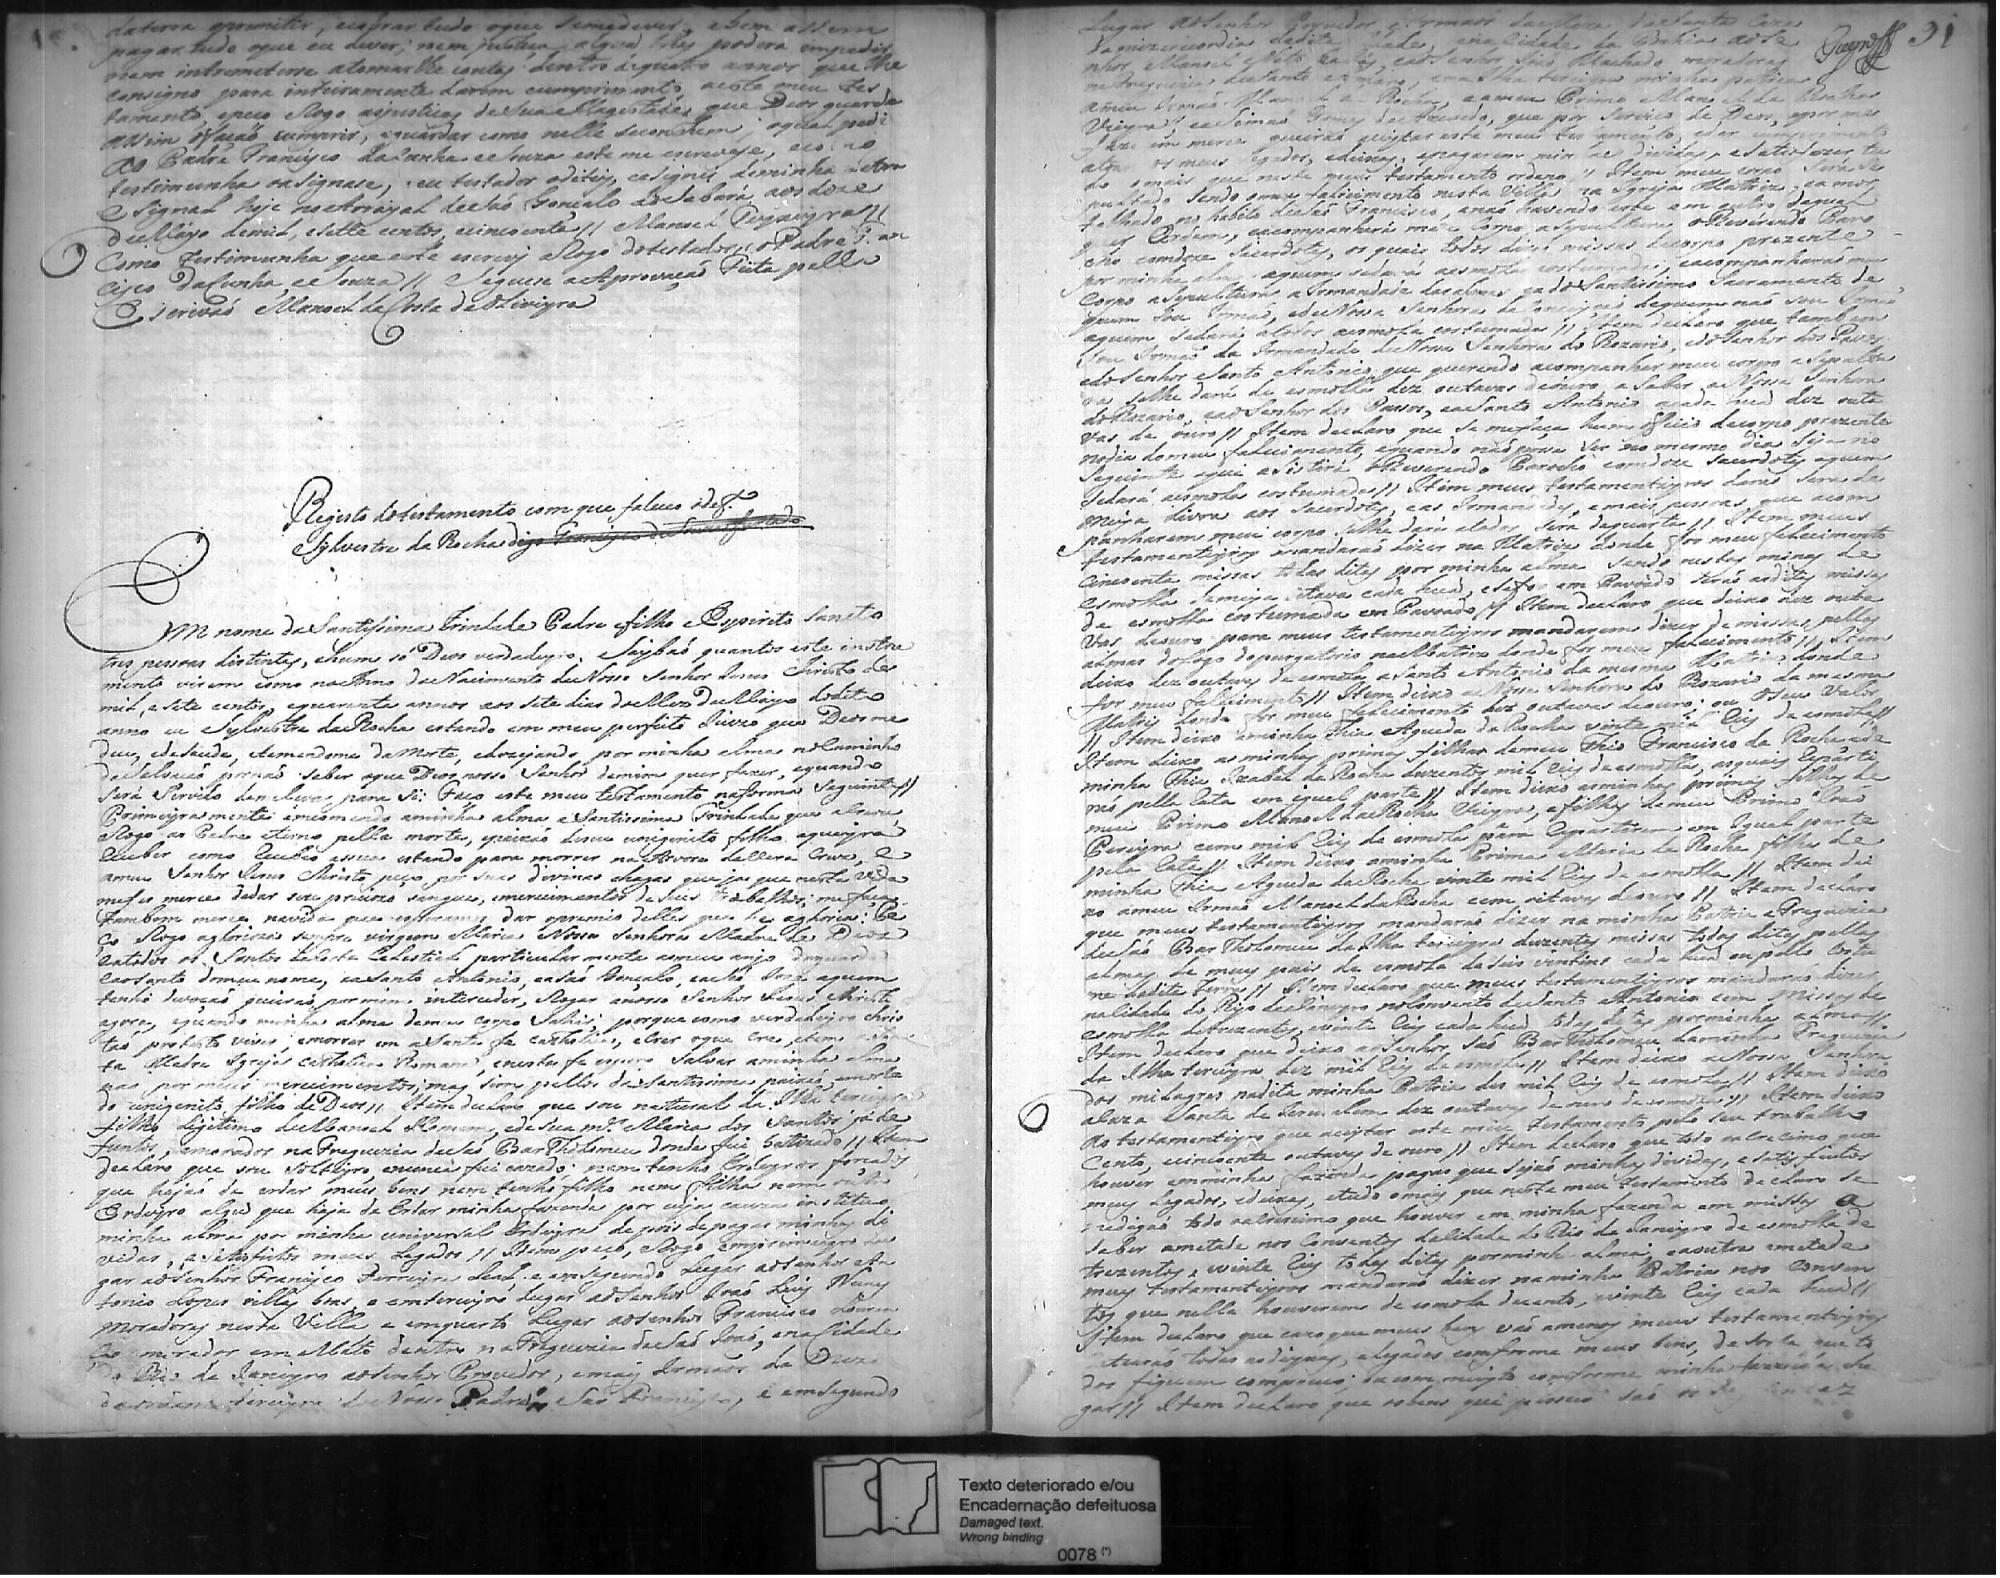 da terra o premitir, e cobrar tudo o que se me dever, e bem assim
pagar tudo o que eu dever; nem justiça algua lhes poderá empedir
nem intrometerse a tomarlhe contas dentro de quatro annos que lhe
consigno para inteiramente darem cumprimento a este meu tes
tamento, e peço e Rogo as justiças de Sua Magestade que Deos guarde
assim o fação cumprir, e guardar como nelle se conthem; o qual pedi
ao Padre Francisco da Cunha e Souza este me escrevese, e como
testemunha o asignase, e eu testador o ditey, e asigney de minha Letra
e signal hoje no Arrayal de São Gonçalo do Sabará, aos doze
de Mayo de mil, e sette centos, e sincoenta // Manoel Cerqueyra //
Como testimunha que este escrevy a Rogo do testador: o Padre Fran
cisco da Cunha, e Souza // e seguese a Aprovação Feita pello
Escrivão Manoel da Costa de Oliveyra
Registo do testamento com que faleceo o def.
Sylvestre da Rocha digo Francisco de
Em nome da Santissima Trindade Padre e filho e Espirito Sancto
tres pessoas distintas, e hum só Deos verdadeyro. Saybão quantos este instro
mento virem como no Anno do Nacimento de Nosso Senhor Jesus Christo de
mil, e sete centos, e quarenta annos aos sete dias do Mez de Mayo do dito
anno eu Sylvestre da Rocha estando em meu perfeito juizo que Deos me
deu, e de saude, e temendome da Morte, e dezejando por minha alma no Caminho
da Salvação por não saber o que Deos nosso Senhor de mim quer fazer, e quando
será servido de me levar para si: Faço este meu testamento na forma seguinte //
Primeyramente encomendo a minha alma a Santissima Trindade que a criou,
e Rogo ao Padre eterno pella morte, e paixão de seu unigenito filho a queyra
receber como recebeo a sua estando para morrer na Arvore da Vera Cruz, e
a meu Senhor Jesus Christo peço por suas divinas chagas que ja que nesta vida
me fes merce de dar seu preciozo sangue, e merecimentos de seus trabalhos; me faça
tambem merce na vida que esperamos dar o premio delles que he a gloria: Pe
ço e Rogo a glorioza sempre virgem Maria Nossa Senhora Madre de Deos
e a todos os Santos da Corte Celestial particularmente ao meu anjo da guarda
e ao santo do meu nome, e a santo Antonio, e a São Gonçalo, e a São Joze a quem
tenho devoção queirão por mim interceder, e Rogar a nosso Senhor Jesus Christo
agora, e quando minha alma de meu corpo sahir; porque como verdadeyro chris
tão protesto viver e morrer em a Santa fé catholica, e crer o que cre, e tem a San
ta Madre Igreja catholica Romana, e nesta fé espero salvar a minha alma
não por meus merecimentos; mas sim pellos da Santissima paixão, e morte
do unigenito filho de Deos // Item declaro que sou natural da Ilha terceyra
filho legitimo de Manoel Homem, e de sua m.er Maria dos Santos já de
funtos, e moradores na Freguezia de São Bartholomeu donde fui batizado // Item
declaro que sou solteyro, e nunca fui cazado; nem tenho erdeyros forçados
que hajão de erdar meus bens nem tenho filho nem filha nem outro
Erdeyro algũ que haja de erdar minha fazenda por cuja cauza instituo
minha alma por minha universal Erdeyra de pois de pagas minhas di
vidas, e satisfeitos meus Legados // Item peço, e Rogo em primeyro Lu
gar ao Senhor Francisco Ferreyra Leal, e em segundo Lugar ao Senhor An
tonio Lopes villas boas, e em terceyro Lugar ao Senhor João Nunes
moradores nesta Villa e em quarto Lugar ao senhor Francisco Louren
ço morador em Mato dentro na Freguezia de São João, e na Cidade
do Rio de Janeyro ao Senhor Provedor, e mais Irmaos da Meza
da ordem terceyra de Nosso Padre São Francisco, e em segundo
31
Lugar ao Senhor Provedor e Irmaos da meza da Santa Caza
da mizericordia da dita Cidade, e na Cidade da Bahia ao Se
nhor Manoel e ao Senhor João Machado moradores
na Freguezia de santo e na Ilha terceyra minha patria
a meu Irmão Manoel da Rocha, e a meu Primo Manoel da Rocha
Vieyra, e a Simão Gomes de Azevedo, que por serviço de Deos, e por me
fazerem merce queirão aceytar este meu testamento, e dar cumprimento
a os meus Legados, e deixas, e pagarem minhas dividas, e satisfazer tu
do o mais que neste meu testamento ordeno // Item meu corpo será se
pultado sendo o meu falecimento nesta Villa na Igreja Matriz, e amor
talhado no habito de São Francisco, e não havendo este em outro de qual
quer Ordem, e acompanhará meu Corpo, a sepultura o Reverendo Paro
cho com doze Sacerdotes, os quais todos dirão missas de corpo prezente
por minha alma a quem se dará a esmola costumada, e acompanharão meu
Corpo a sepultura a Irmandade das almas e a do Santissimo Sacramento de
quem sou Irmão, e de Nossa Senhora da Conceyção de quem não sou Irmão
a quem se dará a todos a esmola costumada // Item declaro que tambem
sou Irmão da Irmandade de Nossa Senhora do Rozario, e do Senhor dos Passos
e do Senhor Santo Antonio, que querendo acompanhar meu corpo a sepultu
ra se lhe dará de esmolla dez outavas de ouro, a saber a Nossa Senhora
do Rozario, e ao Senhor dos Passos, e a Santo Antonio a cada hua dez outa
vas de ouro // Item declaro que se me faça hum officio de corpo prezente
no dia do meu falecimento, e quando não possa ser no mesmo dia seja no
seguinte e que asistirá o Reverendo Parocho com doze sacerdotes a quem
se dará a esmola costumada // Item meus testamenteyros darão sera de
meya livra aos Sacerdotes, e as Irmandades, e mais pessoas que acom
panharem meu corpo se lhe dará a todos sera de quarta // Item meus
testamenteyros mandarão dizer na Matriz donde for meu falecimento
cincoenta missas todas ditas por minha alma sendo nestas minas de
esmolla de meya outava cada hua, e se for em Povoado serão as ditas missas
de esmolla costumada em Povoado // Item declaro que deixo dez outa
vas de ouro para meus testamenteyros mandarem dizer de missas, pellas
almas do fogo do purgatorio na Matriz donde for meu falecimento // Item
deixo dez outavas de esmola a santo Antonio da mesma Matriz donde
for meu falecimento // Item deixo a Nossa Senhora do Rozario da mesma
Matriz donde for meu falecimento dez outavas de ouro; ou o seu valor
// Item deixo a minha Thia Agueda da Rocha vinte mil Reis de esmolla //
Item deixo as minhas primas filhas de meu Thio Francisco da Rocha e de
minha Thia Izabel da Rocha duzentos mil Reis de esmolla, as quais reparti
rão pella Rata em igual parte // Item deixo as minhas primas filhas de
meu Primo Manoel da Rocha Vieyra, e filhas de meu Primo João
Pereyra cem mil Reis de esmola para repartirem em igual parte
pela Rata // Item deixo a minha Prima Maria da Rocha filha de
minha Thia Agueda da Rocha vinte mil Reis de esmolla // Item dei
xo a meu Irmão Manoel da Rocha cem oitavas de ouro // Item declaro
que meus testamenteyros mandarão dizer na minha Patria e Freguezia
de São Bartholomeu da Ilha terceyra duzentas missas todas ditas pellas
almas de meus pais de esmola de seis vintens cada hua ou pello costu
me da dita terra // Item declaro que meus testamenteyros mandarão dizer
na Cidade do Rio de Janeyro no Convento de Santo Antonio cem missas de
esmolla de trezentos, e vinte Reis cada hua todas ditas por minha alma //
Item declaro que deixo ao Senhor São Bartholomeu da minha Freguezia
da Ilha terceyra dez mil Reis de esmola // Item deixo a Nossa Senhora
dos milagres na dita minha Patria dez mil Reis de esmola // Item deixo
a Caza Santa de Jerusalem dez outavas de ouro de esmola // Item deixo
ao testamenteyro que aceytar este meu testamento pelo seu trabalho
cento, e cincoenta outavas de ouro // Item declaro que todo o acrecimo que
houver em minha fazenda pagas que sejão minhas dividas, e satisfeitos
meus Legados, e deixas, e tudo o mais que neste meu testamento declaro se
rediga todo o acrecimo que houver em minha fazenda em missas a
saber a metade nos Conventos da Cidade do Rio de Janeyro de esmolla de
trezentos, e vinte Reis todas ditas por minha alma, e a outra ametade
meus testamenteyros mandarão dizer na minha Patria nos Conven
tos que nella houverem de esmola de cento, e vinte Reis cada hua //
Item declaro que cazo que meus bens vão a menos meus testamenteyros
todas as deyxas, e legados comforme meus bens, de sorte que to
dos fiquem comforme minha fazenda che
gar // Item declaro que os bens que possuo são os
Texto deteriorado e/ou
Encadernação defeituosa
Damaged text.
Wrong binding
0078 (*)